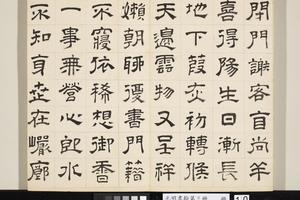 閉門謝客自尚羊
喜得陽生日漸長
地下葭灰初轉候
天邊雲物又呈祥
嬾朝聊復書門籍
不寢依稀想御香
一事無營心即水
不知身在巖廊